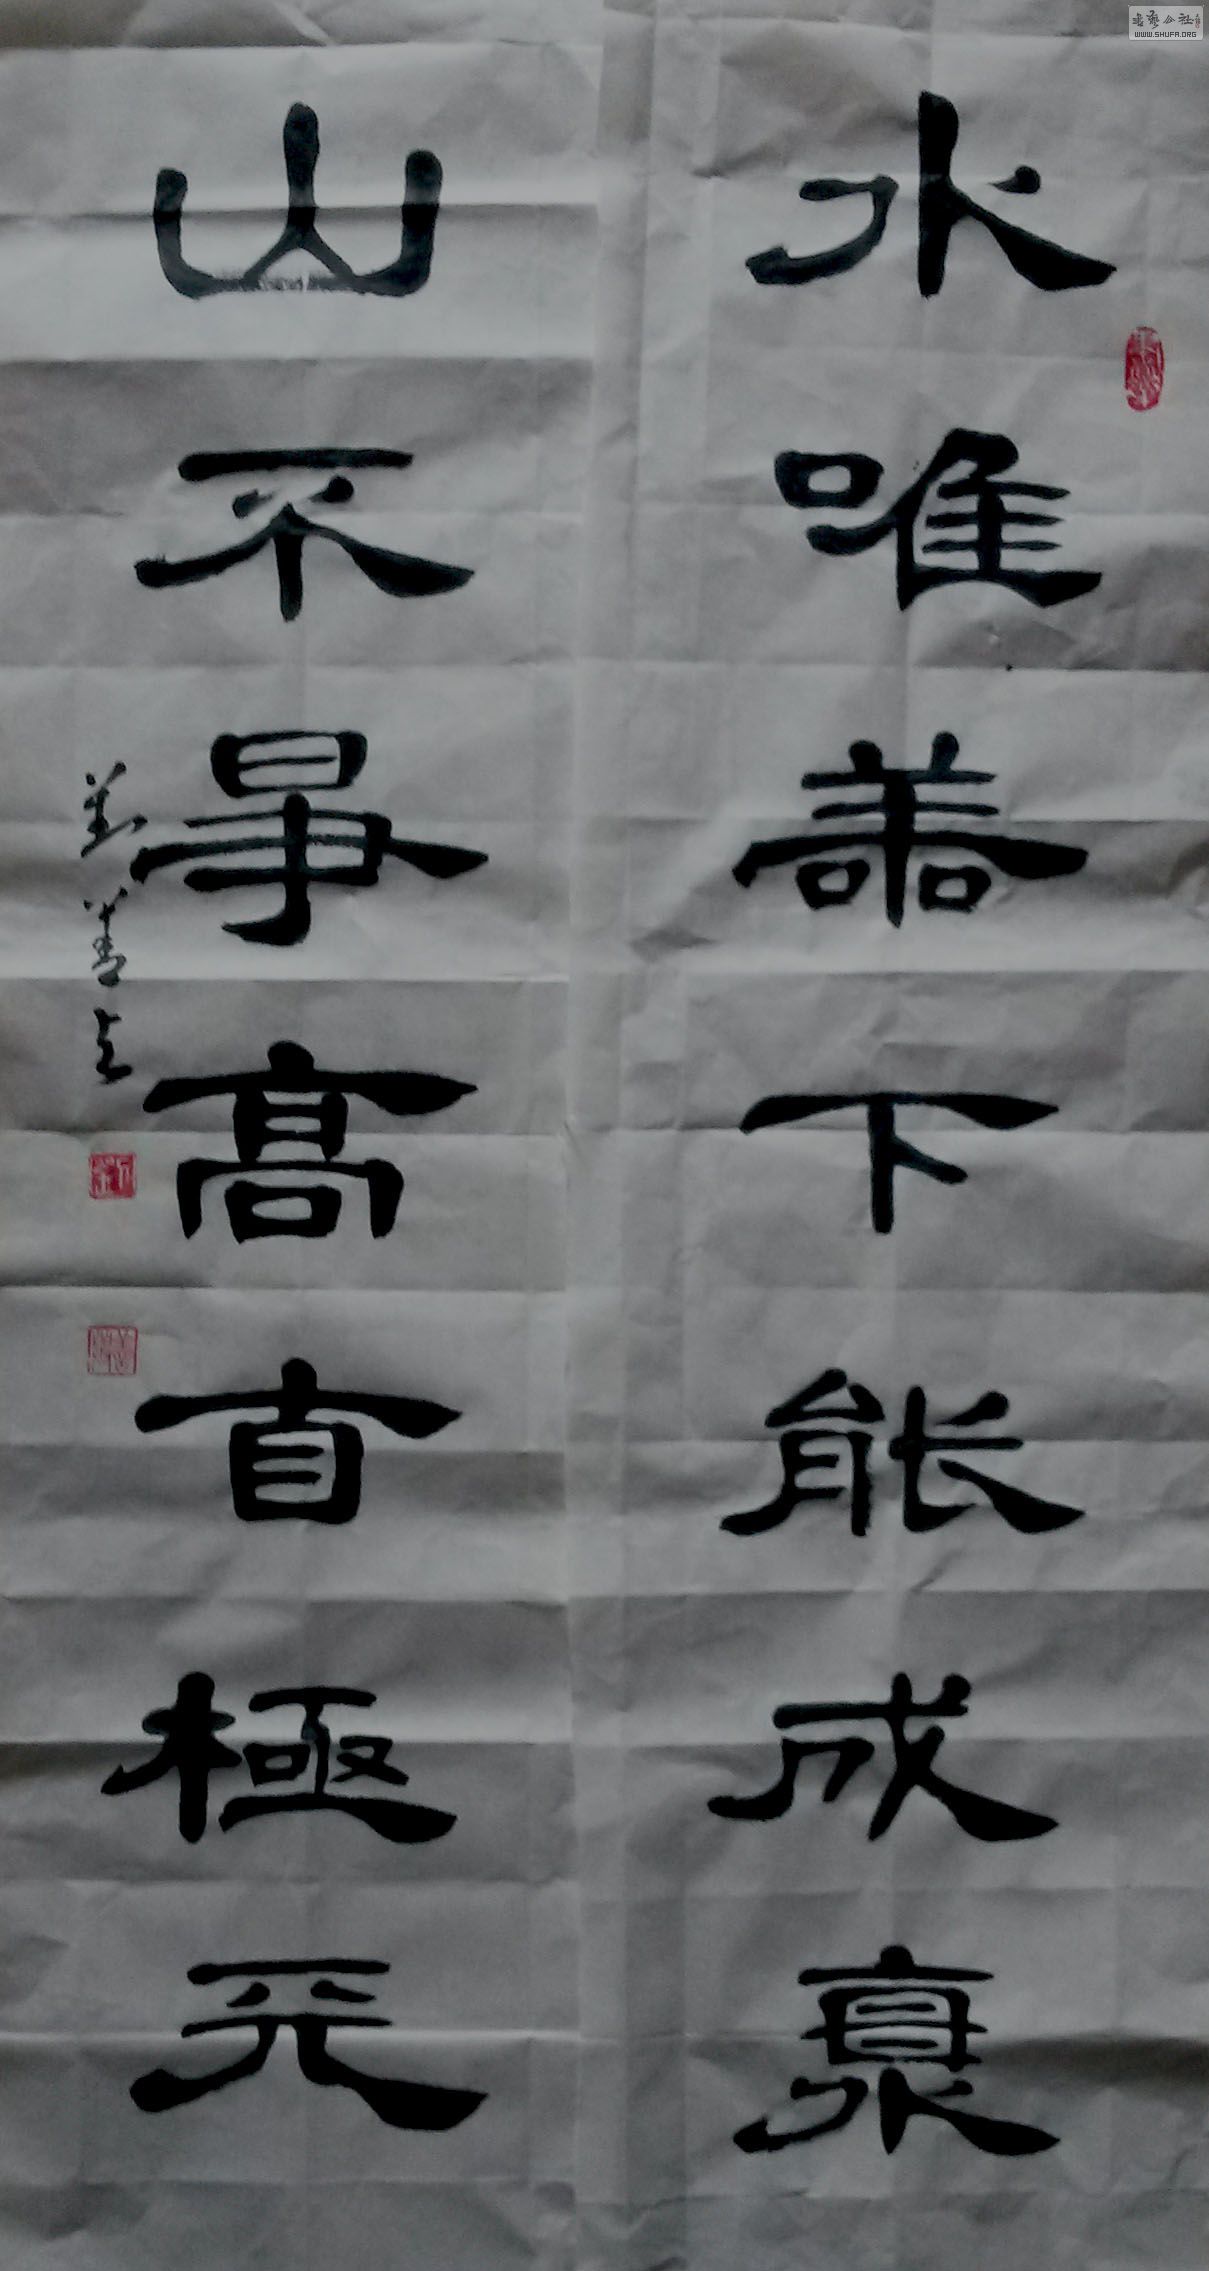 水唯善下能成海
山不爭高自極天
劉善
劉
書藝公社
WWW.SHUFA.ORG